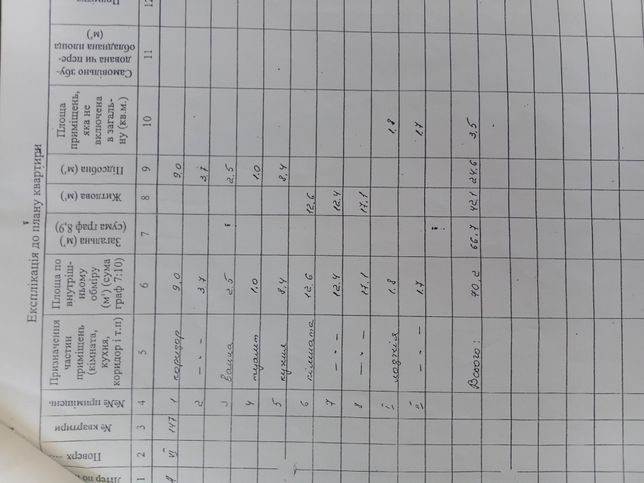 Експлікація до плану квартири
Поверх
№ квартири
№№ приміщень
Призначення
частин
приміщень
(кімната,
кухня,
коридор і т.п)
Площа по
внутріш-
ньому
обміру
(м²) (сума
граф 7:10)
Загальна (м²)
(сума граф 8,9)
Житлова (м²)
Підсобна (м²)
Площа
приміщень,
яка не
включена
в загаль-
ну (кв.м.)
Самовільно збу-
дована чи пере-
обладнана площа
(м²)
1 2 3 4 5 6 7 8 9 10 11 12
VI 147 1 коридор 9,0 9,0
2 — " — 3,7 3,7
3 ванна 2,5 2,5
4 туалет 1,0 1,0
5 кухня 8,4 8,4
6 кімната 12,6 12,6
7 — " — 12,4 12,4
8 — " — 17,1 17,1
I лоджія 1,8 1,8
II — " — 1,7 1,7
Всього: 70,2 66,7 42,1 24,6 3,5